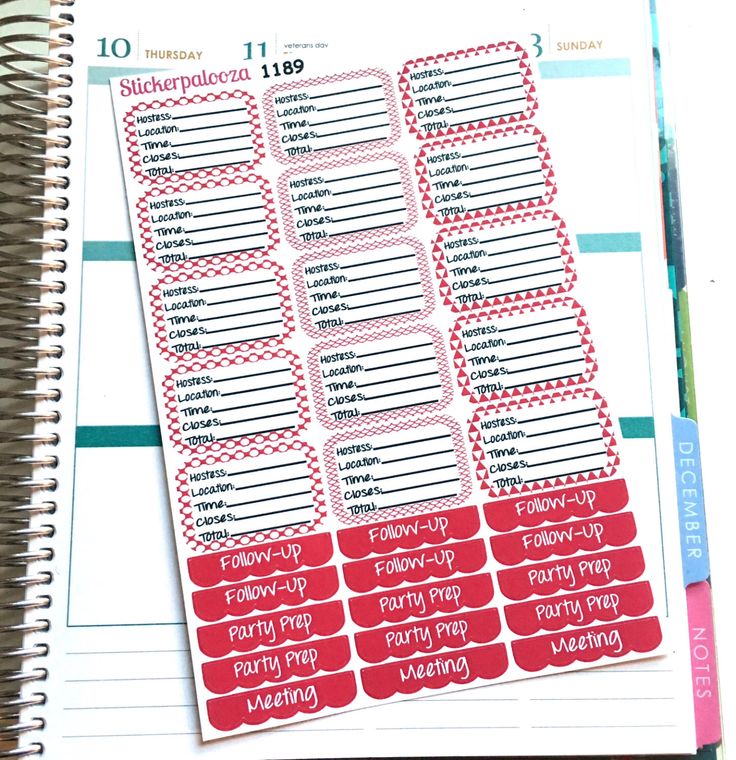 10 THURSDAY
11 veterans day
3 SUNDAY
Stickerpalooza 1189
Hostess:
Location:
Time:
Closes:
Total:
Hostess:
Location:
Time:
Closes:
Total:
Hostess:
Location:
Time:
Closes:
Total:
Hostess:
Location:
Time:
Closes:
Total:
Hostess:
Location:
Time:
Closes:
Total:
Hostess:
Location:
Time:
Closes:
Total:
Hostess:
Location:
Time:
Closes:
Total:
Hostess:
Location:
Time:
Closes:
Total:
Hostess:
Location:
Time:
Closes:
Total:
Hostess:
Location:
Time:
Closes:
Total:
Hostess:
Location:
Time:
Closes:
Total:
Hostess:
Location:
Time:
Closes:
Total:
Hostess:
Location:
Time:
Closes:
Total:
Hostess:
Location:
Time:
Closes:
Total:
Hostess:
Location:
Time:
Closes:
Total:
Follow-Up
Follow-Up
Follow-Up
Follow-Up
Follow-Up
Follow-Up
Party Prep
Party Prep
Party Prep
Party Prep
Party Prep
Party Prep
Meeting
Meeting
Meeting
DECEMBER
NOTES